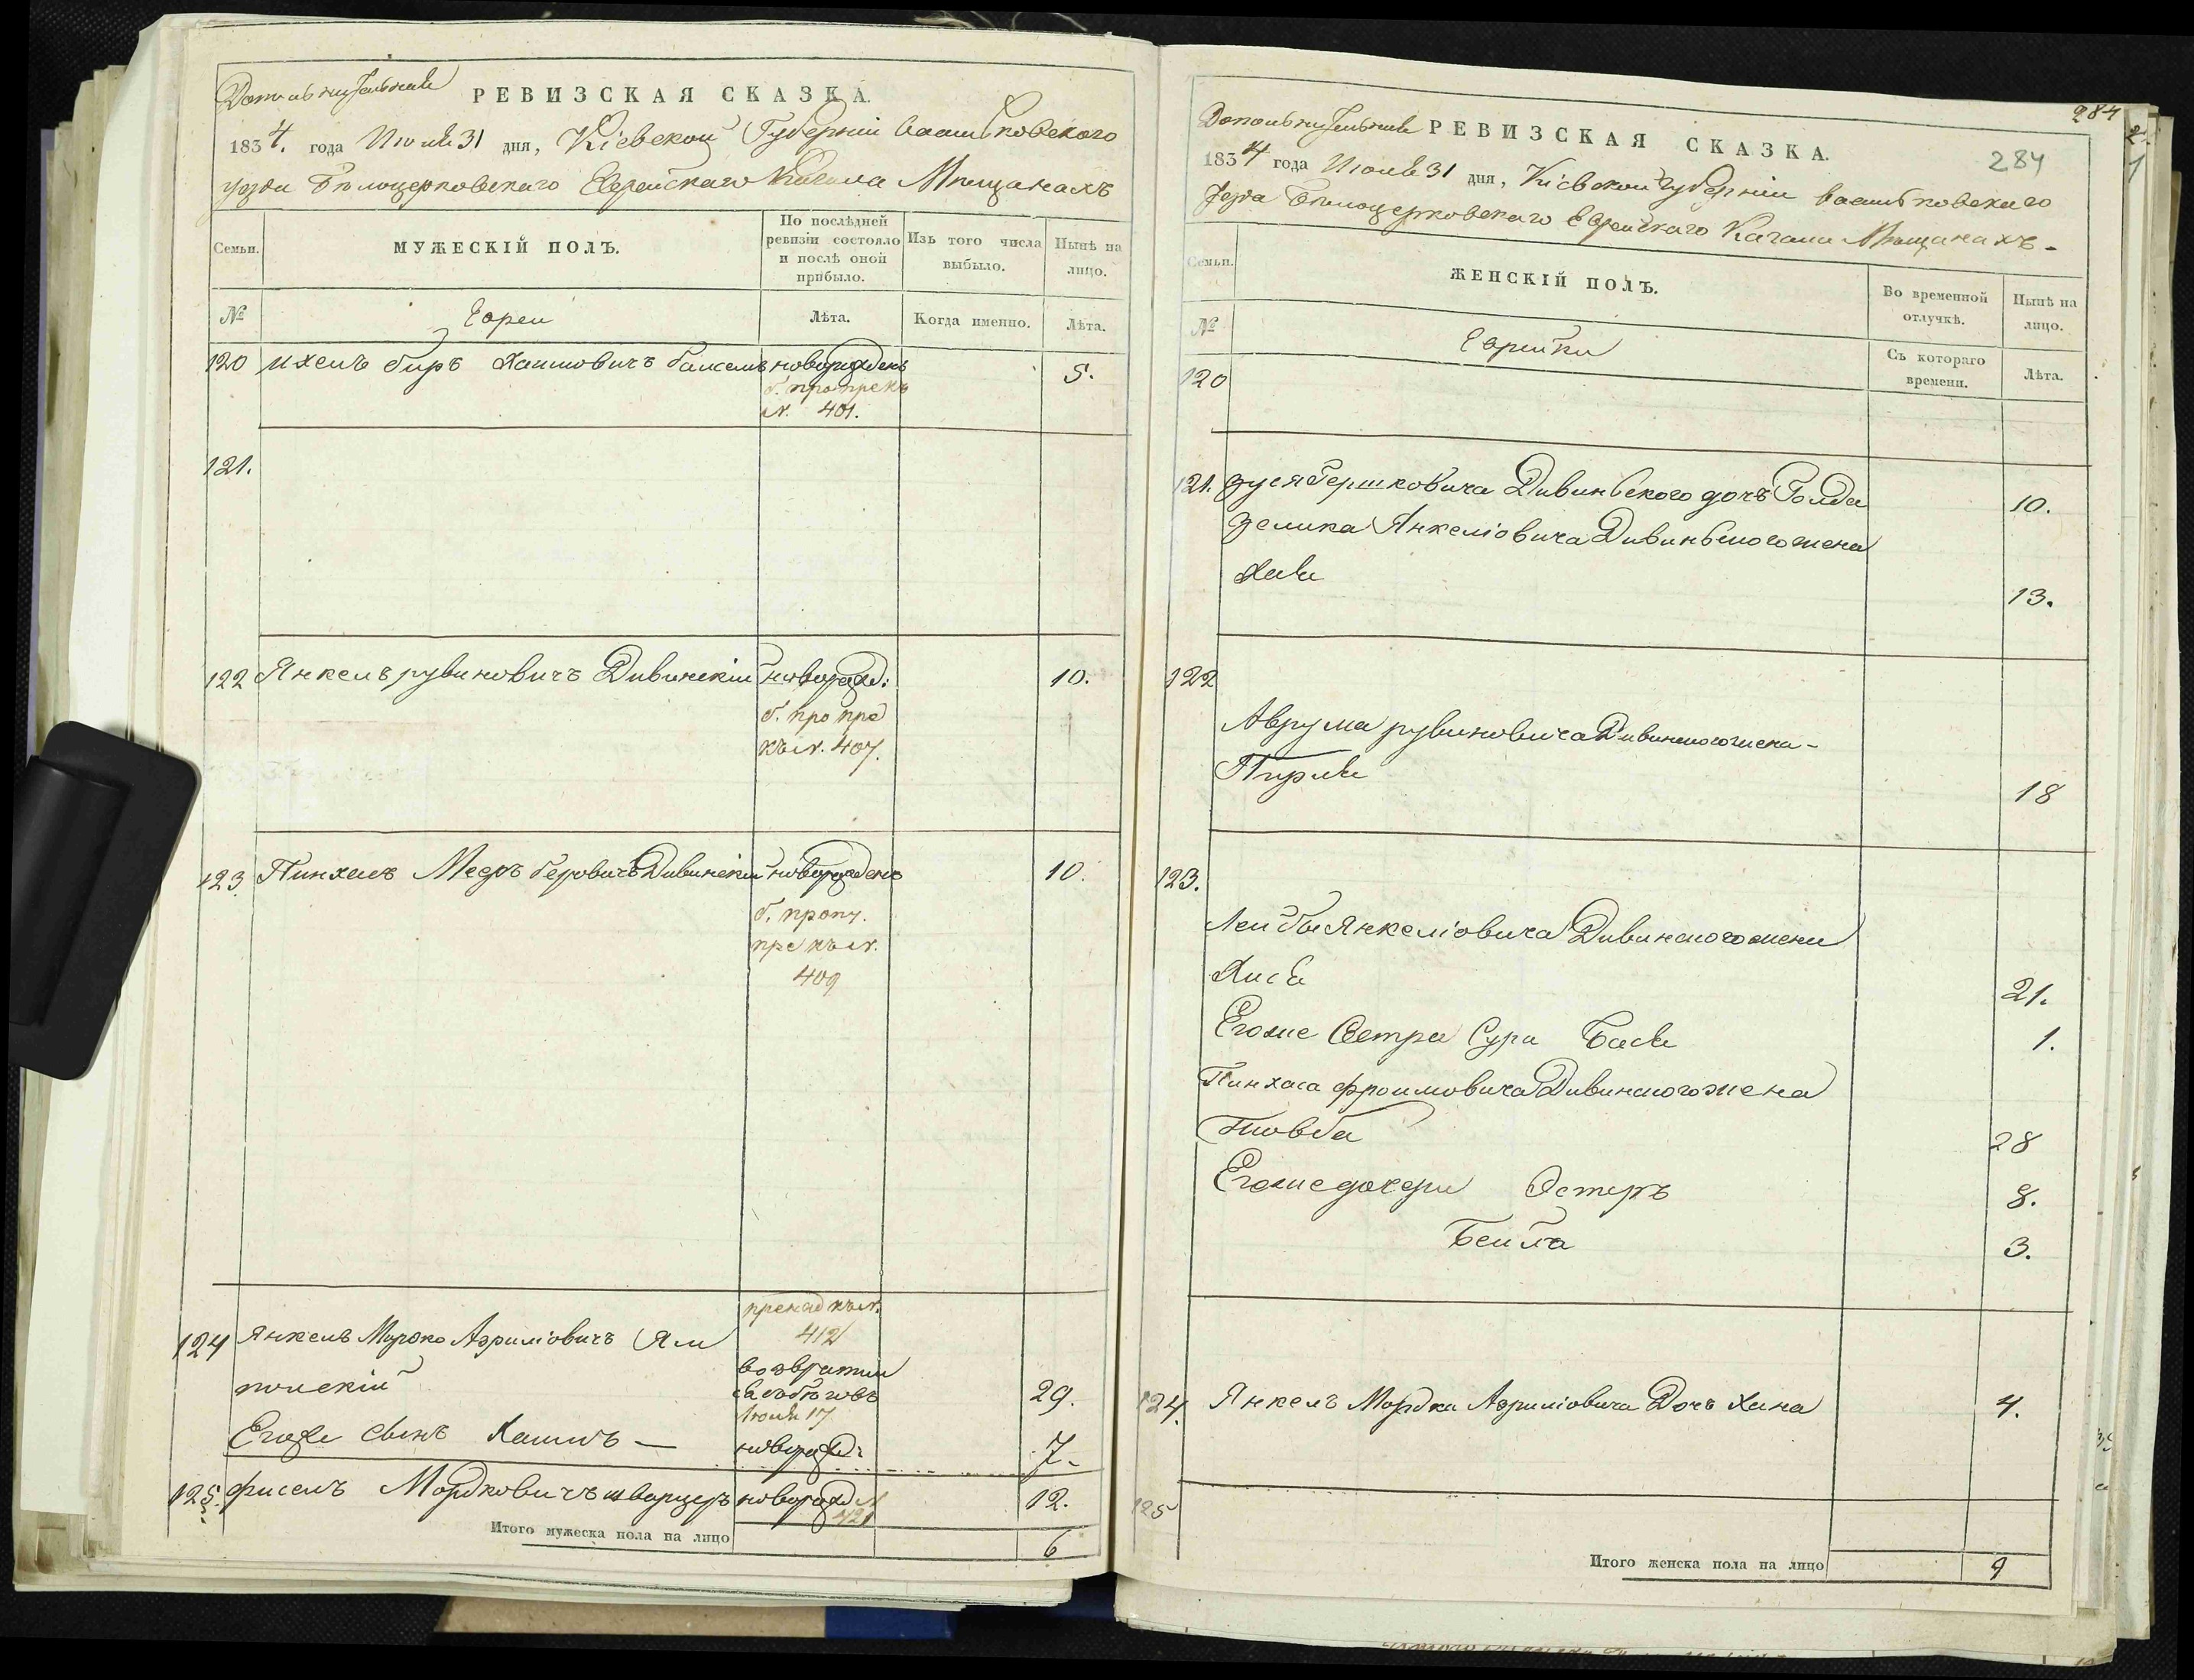 Дополнительная РЕВИЗСКАЯ СКАЗКА.
1834. года Июля 31 дня, Кіевской Губерніи Васильковского
уезда Белоцерковскаго Еврейскаго Кагала Мещанахъ
Семьи.
МУЖЕСКІЙ ПОЛЪ.
По послѣдней ревизіи состояло и послѣ оной прибыло.
Изъ того числа выбыло.
Нынѣ на лицо.
№
Евреи
Лѣта.
Когда именно.
Лѣта.
120 Ихель Беръ Хаимовичъ новорожденъ 5.
№. 401.
121.
122 Янкель рувиновичъ Дивинскій новорожд: 10.
къ №. 407.
123 Пинхасъ Мееръ беровичъ Дивинскій новорожденъ 10.
б. проп.
пре къ №.
409
къ №.
412
124 Янкель Мордко Авриміовичъ Ям
польскій возвратил
29.
Июля 17
Егоже сынъ Хаимъ — новорожд: 7.
125. фисель Мордковичъ шварцеръ новорожд № 421 12.
Итого мужеска пола на лицо 6
284
284
Дополнительная РЕВИЗСКАЯ СКАЗКА.
1834 года Июля 31 дня, Кіевской губерніи Васильковскаго
уезда Белоцерковскаго Еврейскаго Кагала Мещанахъ
Семьи.
ЖЕНСКІЙ ПОЛЪ.
Во временной отлучкѣ.
Нынѣ на лицо.
№
Еврейки
Съ котораго времени.
Лѣта.
120
121. Зуся Гершковича Дивинского дочъ Голда 10.
Зелика Янкеліовича Дивинского жена
Хая 13.
122
Аврума рувиновича Дивинского жена
Перля 18
123.
Лейбы Янкеліовича Дивинского жена
Хися 21.
Егоже Сестра Сура Бася 1.
Пинхаса фроимовича Дивинского жена
Товба 28
Егоже дочери Эстеръ 8.
Бейла 3.
124. Янкель Мордка Авриміовича Дочъ Хана 4.
125
Итого женска пола на лицо 9